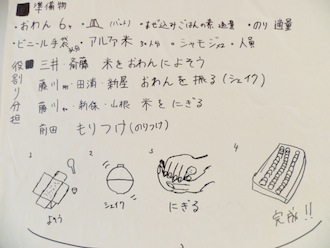 準備物
・おわん 6ヶ ・皿(バット) ・まぜ込みごはんの素 適量 ・のり 適量
・ビニール手袋 ・アルファ米 30人分 ・シャモジ2ヶ ・人員
役割り分担
三井・斎藤 米をおわんによそう
藤川・田濱・新屋 おわんを振る(シェイク)
藤川・新保・山根 米をにぎる
前田 もりつけ(のりつけ)
1 2 3 4
よそう
シェイク
にぎる
完成!!